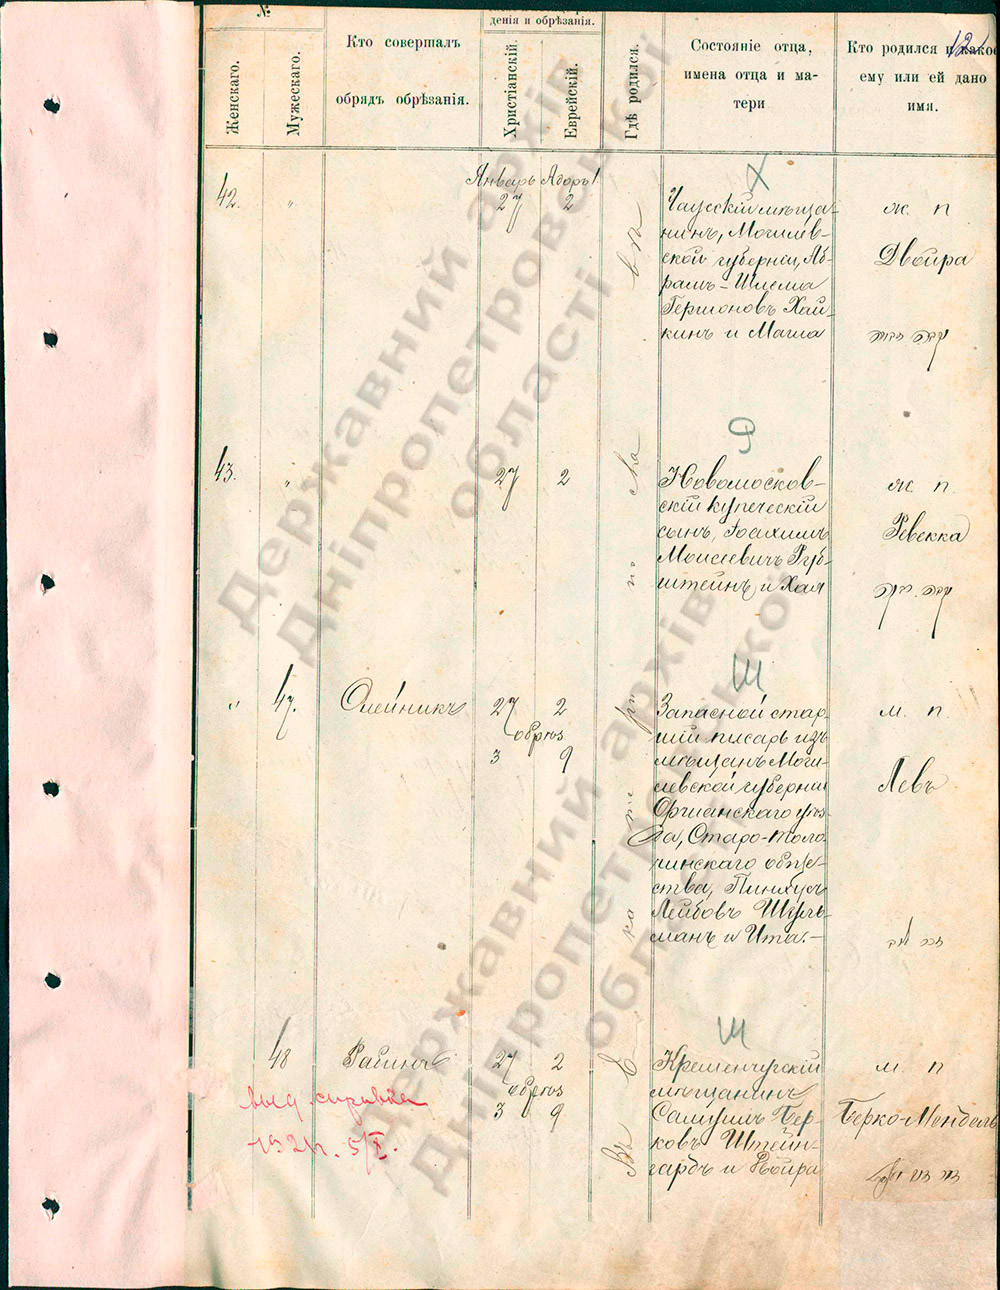 №
дения и обрѣзанія.
Женскаго.
Мужескаго.
Кто совершалъ
обрядъ обрѣзанія.
Христіанскій.
Еврейскій.
Гдѣ родился.
Состояніе отца,
имена отца и ма-
тери
Кто родился и какое
ему или ей дано
имя.
Январь Адоръ 1
42. " 27 2
Чаусскій мѣща-
нинъ, Могилев-
ской губерніи, Аб-
рамъ-Шлема
Гершоновъ Хай-
кинъ и Маша
ж. п
Двойра
Р
43. " 27 2
Новомосков-
скій купеческій
сынъ, Іоахимъ
Моисеевичъ Руб-
штейнъ и Хая
ж. п.
Ревекка
Ш
" 47. Олейникъ 27 2
обрѣз
3 9
Запасной стар-
шій писарь изъ
мѣщанъ Моги-
левской губерніи
Оршанскаго уѣз-
да, Старо-Толо-
чинскаго обще-
ства, Пинхусъ
Лейбовъ Шуль-
манъ и Ита.-
м. п.
Левъ
Ш
48 Рабинъ 27 2
обрѣз
3 9
Кременчугскій
мѣщанинъ
Самуилъ Бер-
ковъ Штейн-
гардъ и Двойра
м. п
Берко-Мендель
Въ Екатеринославѣ
выд. справка
192 г. 5/X.
Державний архів
Дніпропетровської
області
Державний архів
Дніпропетровської
області